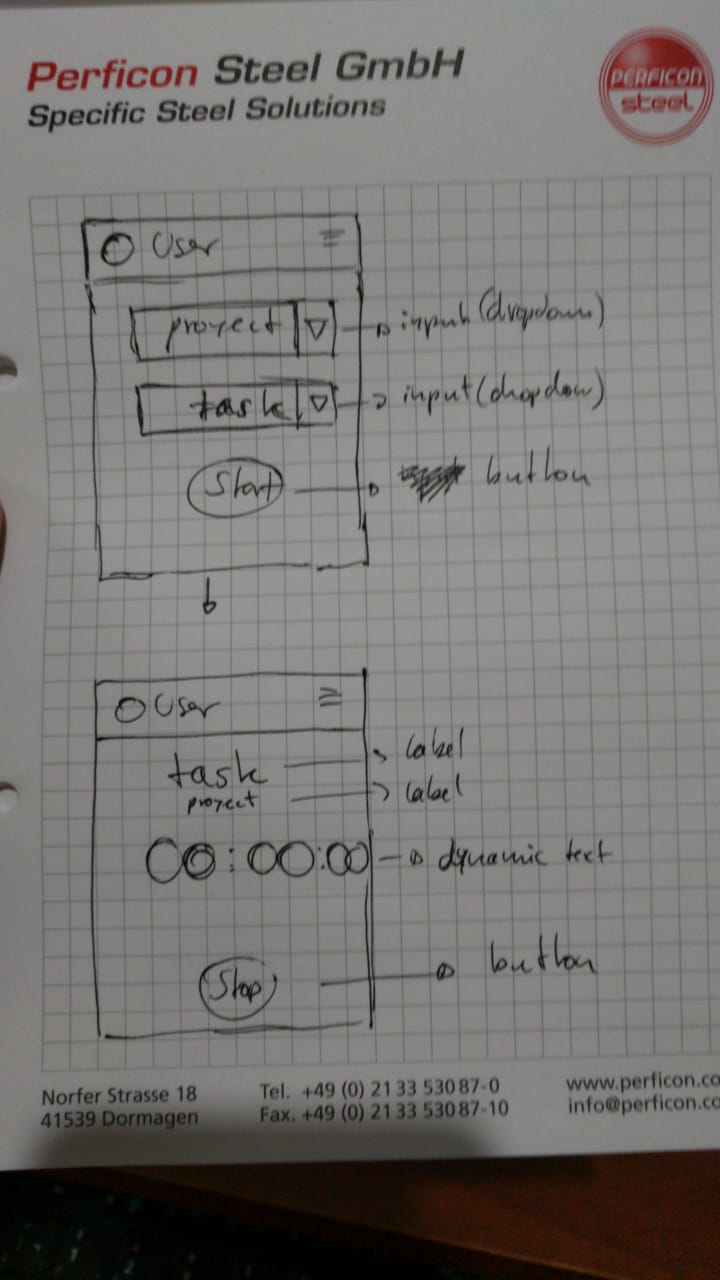 Perficon Steel GmbH
Specific Steel Solutions
PERFICON
steel
User
proyect
input (dropdown)
task
input (dropdow)
Start
button
User
task
label
proyect
label
00:00:00
dynamic text
Stop
button
Norfer Strasse 18
41539 Dormagen
Tel. +49 (0) 21 33 530 87-0
Fax. +49 (0) 21 33 530 87-10
www.perficon.co
info@perficon.co